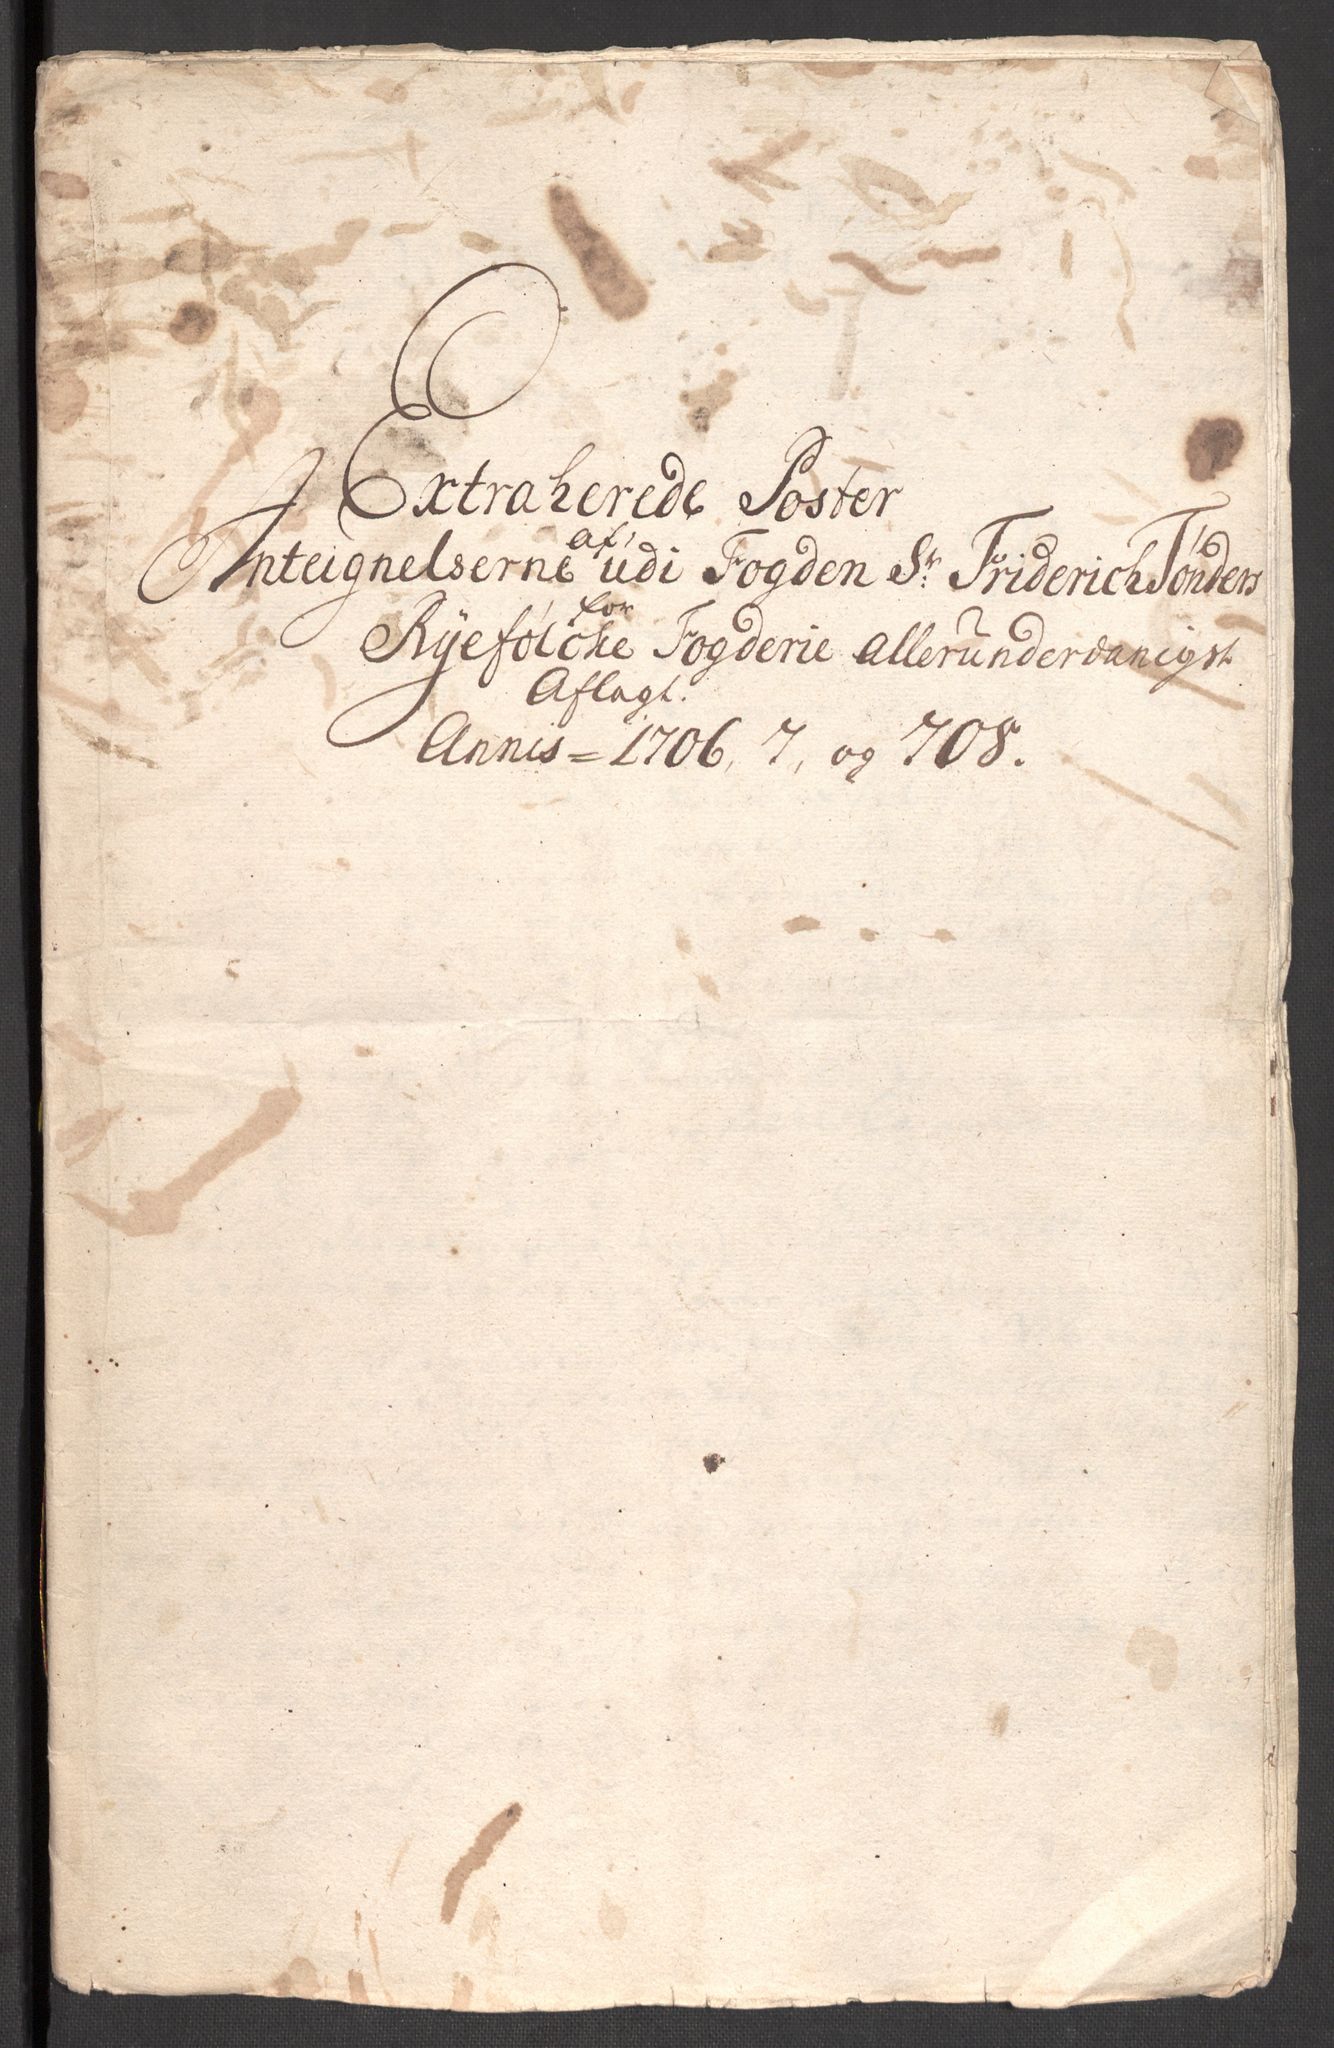 Extraherede Poster
af
Anteignelserne udi Fogden Sr. Friderich Tønders
for
Ryefølche Fogderie allerunderdanigst
Aflagt.
Annis = 1706, 7, og 708.